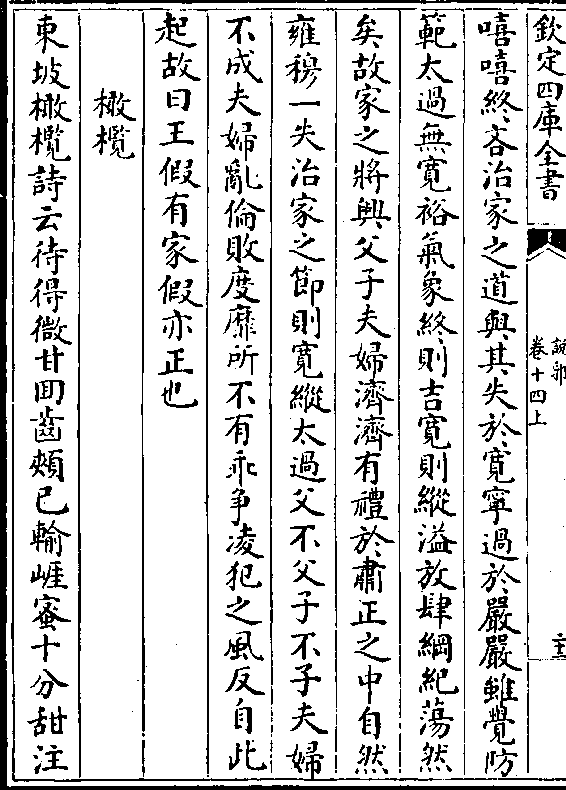 欽定四庫全書
說郛
卷十四上
嘻嘻終吝治家之道與其失於寛寧過於嚴嚴雖覺防
範太過無寛裕氣象終則吉寛則縱溢放肆綱紀蕩然
矣故家之將興父子夫婦濟濟有禮於肅正之中自然
雍穆一失治家之節則寛縱太過父不父子不子夫婦
不成夫婦亂倫敗度靡所不有乖争凌犯之風反自此
起故曰王假有家假亦正也
橄欖
東坡橄欖詩云待得微甘囬齒頰已輸崕蜜十分甜注